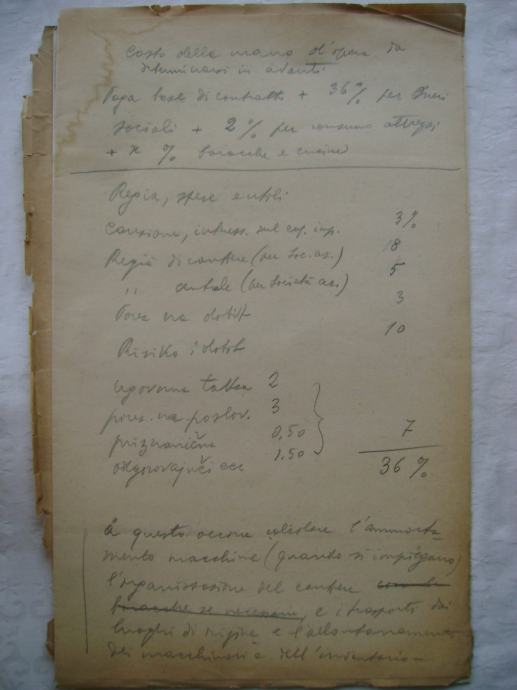 Costo della mano d'opera da
determinarsi in avanti
Paga base di contratto + 36% per Oneri
sociali + 2% per consumo attrezzi
+ x % baracche e cucine
Regia, spese e utili
Cauzione, intress. sul cap. imp. 3%
Regia di cantiere (per Soc. az.) 18
" centrale (per Società az.) 5
na dobit 3
Risiko i dobit 10
ugovorna taksa 2
porez na poslov. 3
priznanična 0,50 7
odgovarajući ecc 1.50 36%
A questo occorre calcolare l'ammorta-
mento macchine (quando si impiegano)
l'organizzazione del cantiere
baracche se necessari, e i trasporti dai
luoghi di origine e l'allontanamento
dei macchinari e dell'inventario